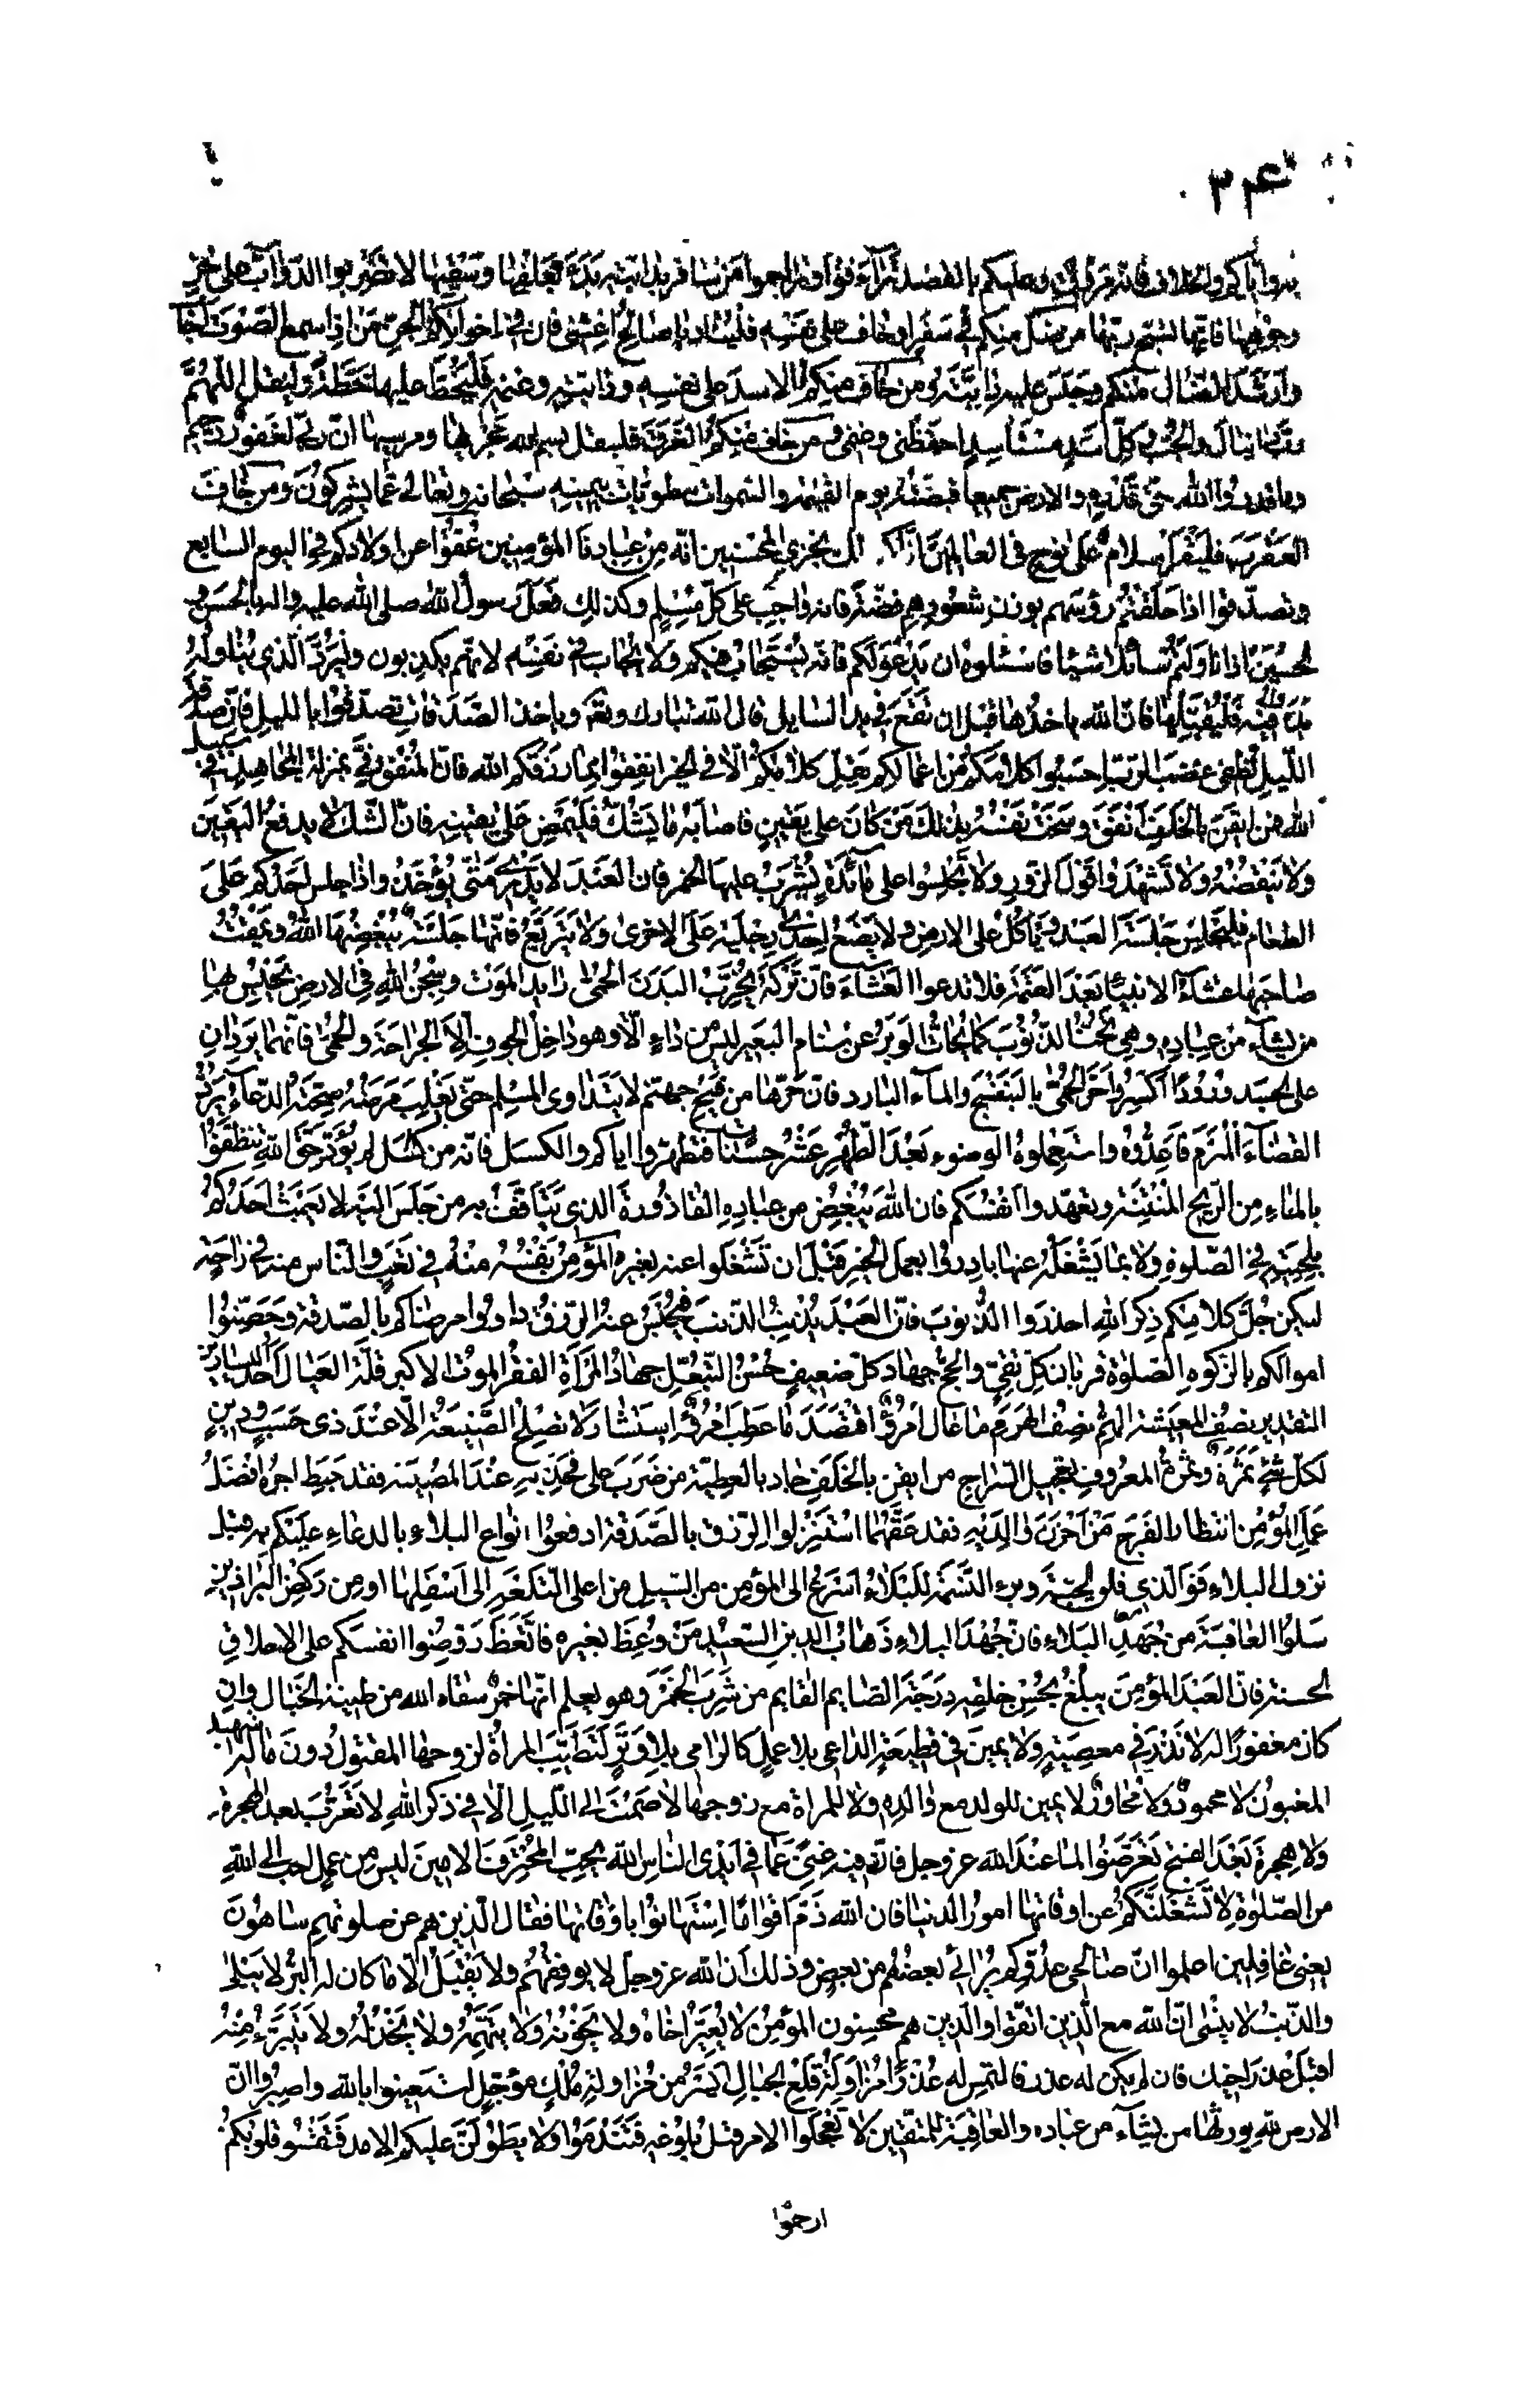 ۳۴
واياكم والخلاف فانه مروق وعليكم بالقصد تراءفوا وتراحموا من سافر بدابته بدء بعلفها وسقيها لا تضربوا الدواب على حر
وجوهها فانها تسبح ربها من ضل منكم في سفر او خاف على نفسه فليناد يا صالح اغثني فان في اخوانكم الجن من اذا سمع الصوت اجاب
وارشد الضال منكم وحبس عليه دابته ومن خاف منكم الاسد على نفسه ودابته وغنمه فليخط عليها خطة وليقل اللهم
رب دانيال والجب وكل اسد مستأسد احفظني وغنمي ومن خاف منكم الغرق فليقل بسم الله مجريها ومرسيها ان ربي لغفور رحيم
وما قدروا الله حق قدره والارض جميعا قبضته يوم القيمة والسموات مطويات بيمينه سبحانه وتعالى عما يشركون ومن خاف
العقرب فليقرأ سلام على نوح في العالمين انا كذلك نجزي المحسنين انه من عبادنا المؤمنين عقوا عن اولادكم في اليوم السابع
وتصدقوا اذا حلقتم رؤسهم بوزن شعورهم فضة فانه واجب على كل مسلم وكذلك فعل رسول الله صلى الله عليه واله بالحسن و
لحسين اذا ناولتم سائلا شيئا فاسئلوه ان يدعو لكم فانه يستجاب فيكم ولا يجاب في نفسه لانهم يكذبون وليرد الذي يناوله
يده الى فيه فليقبلها فان الله ياخذها قبل ان تقع في يد السايل قال الله تبارك وتعالى وياخذ الصدقات تصدقوا بالليل فان صدقة
الليل تطفئ غضب الرب احسبوا كلامكم من اعمالكم يقل كلامكم الا في الخير انفقوا مما رزقكم الله فان المنفق بمنزلة المجاهد في سبيل
الله فمن ايقن بالخلف انفق وسخت نفسه بذلك من كان على يقين فاصابه ما يشك فليمض على يقينه فان الشك لا يدفع اليقين
ولا ينقضه ولا تشهدوا قول الزور ولا تجلسوا على مائدة يشرب عليها الخمر فان العبد لا يدري متى يؤخذ واذا جلس احدكم على
الطعام فليجلس جلسة العبد وياكل على الارض ولا يضع احدى رجليه على الاخرى ولا يتربع فانها جلسة يبغضها الله ويمقت
صاحبها عشاء الانبياء بعد العتمة فلا تدعوا العشاء فان تركه يخرب البدن الحمى رايد الموت وسجن الله في الارض يحبس بها
من يشاء من عباده وهي تحت الذنوب كما يحات الوبر عن سنام البعير ليس من داء الا وهو داخل الجوف الا الجراحة والحمى فانهما يردان
على الجسد ورودا اكسروا حر الحمى بالبنفسج والماء البارد فان حرها من فيح جهنم لا يتداوى المسلم حتى يغلب مرضه صحته الدعاء يرد
القضاء المبرم فاعدوه واستعملوه الوضوء بعد الطهر عشر حسنات فتطهروا اياكم والكسل فانه من كسل لم يؤد حق الله تنظفوا
بالماء من الريح المنتنة وتعهدوا انفسكم فان الله يبغض من عباده القاذورة الذي يتافف به من جلس اليه لا يعبث احدكم
بلحيته في الصلوة ولا بما يشغله عنها بادروا بعمل الخير قبل ان تشغلوا عنه بغيره المؤمن نفسه منه في تعب والناس منه في راحة
ليكن جل كلامكم ذكر الله احذروا الذنوب فان العبد يذنب الذنب فيحبس عنه الرزق داووا مرضاكم بالصدقة وحصنوا
اموالكم بالزكوة الصلوة قربان كل تقي والحج جهاد كل ضعيف حسن التبعل جهاد المراة الفقر الموت الاكبر قلة العيال احد اليسارين
التقدير نصف المعيشة الهم نصف الهرم ما عال امرؤ اقتصد ما عطب امرؤ استشار لا تصلح الصنيعة الا عند ذى حسب ودين
لكل شيء ثمرة وثمرة المعروف تعجيل السراج من ايقن بالخلف جاد بالعطية من ضرب على فخذيه عند المصيبة فقد حبط اجره افضل
عمل المؤمن انتظار الفرج من احزن والديه فقد عقهما استنزلوا الرزق بالصدقة ادفعوا انواع البلاء بالدعاء عليكم به قبل
نزول البلاء فو الذي فلق الحبة وبرء النسمة للبلاء اسرع الى المؤمن من السيل من اعلى التلعة الى اسفلها او من ركض البراذين
سلوا العافية من جهد البلاء فان جهد البلاء ذهاب الدين السعيد من وعظ بغيره فاتعظ روضوا انفسكم على الاخلاق
الحسنة فان العبد المؤمن يبلغ بحسن خلقه درجة الصايم القايم من شرب الخمر وهو يعلم انها خمر سقاه الله من طينة الخبال وان
كان مغفورا له لا نذر في معصية ولا يمين في قطيعة الداعي بلا عمل كالرامي بلا وتر لتطيب المراة لزوجها المقتول دون ماله شهيد
المغبون لا محمود ولا ماجور لا يمين للولد مع والده ولا للمراة مع زوجها لا صمت الى الليل الا في ذكر الله لا تعرب بعد الهجرة
ولا هجرة بعد الفتح تعرضوا لما عند الله عز وجل فان فيه غنى عما في ايدى الناس الله يحب المحترف الامين ليس من عمل احب الى الله
من الصلوة لا تشغلنكم عن اوقاتها امور الدنيا فان الله ذم اقواما استهانوا باوقاتها فقال الذين هم عن صلوتهم ساهون
يعني غافلين اعلموا ان صالحى عدوكم يرائي بعضهم من بعض وذلك ان الله عز وجل لا يوفقهم ولا يقبل الا ما كان له البر لا يبلى
والذنب لا ينسى ان الله مع الذين اتقوا والذين هم محسنون المؤمن لا يعير اخاه ولا يخونه ولا يتهمه ولا يخذله ولا يتبرء منه
اقبل عذر اخيك فان لم يكن له عذر فالتمس له عذرا مزاولة قلع الجبال ايسر من مزاولة ملك مؤجل استعينوا بالله واصبروا ان
الارض لله يورثها من يشاء من عباده والعاقبة للمتقين لا تعجلوا الامر قبل بلوغه فتندموا ولا يطولن عليكم الامد فتقسو قلوبكم
ارحموا